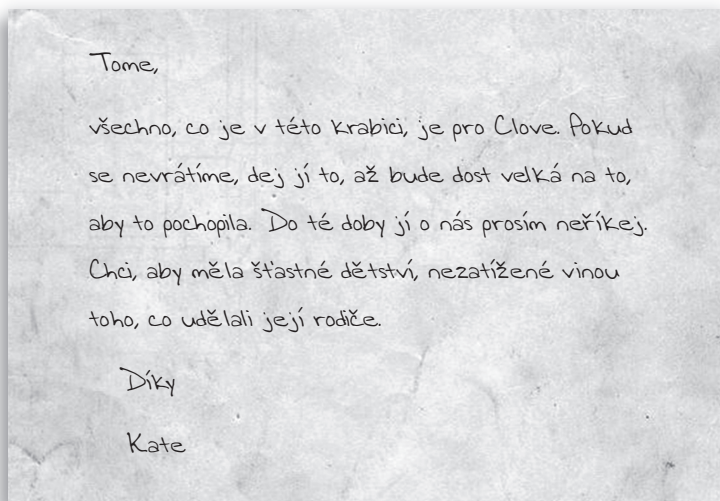 Tome,
všechno, co je v této krabici, je pro Clove. Pokud
se nevrátíme, dej jí to, až bude dost velká na to,
aby to pochopila. Do té doby jí o nás prosím neříkej.
Chci, aby měla šťastné dětství, nezatížené vinou
toho, co udělali její rodiče.
Díky
Kate